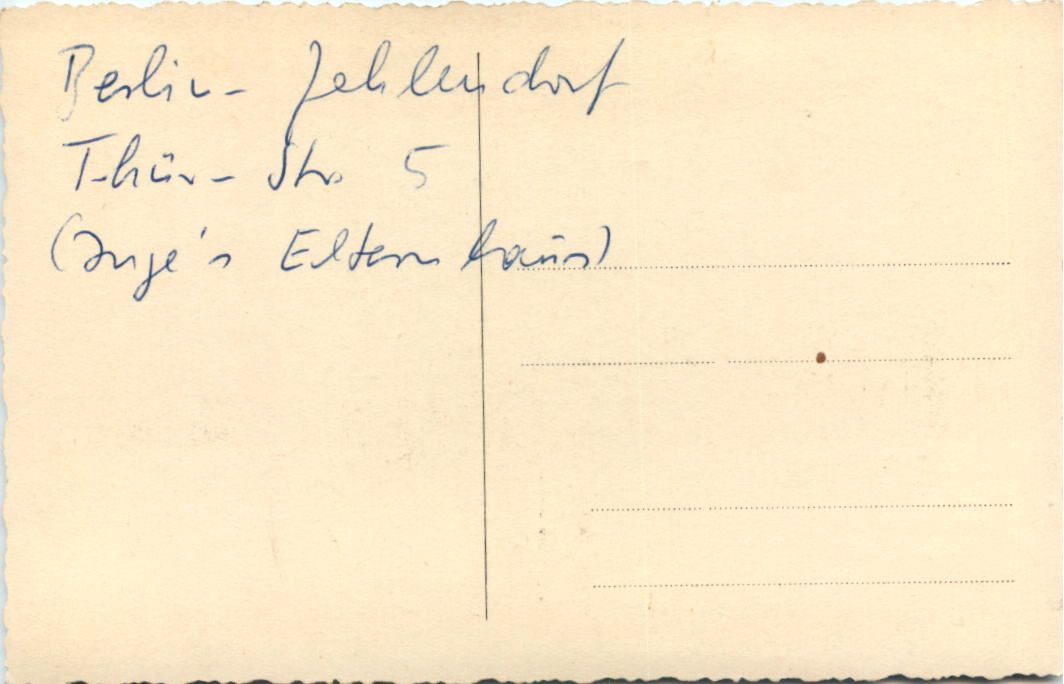 Berlin- Zehlendorf
Thür- Str. 5
(Inge's Elternhaus)